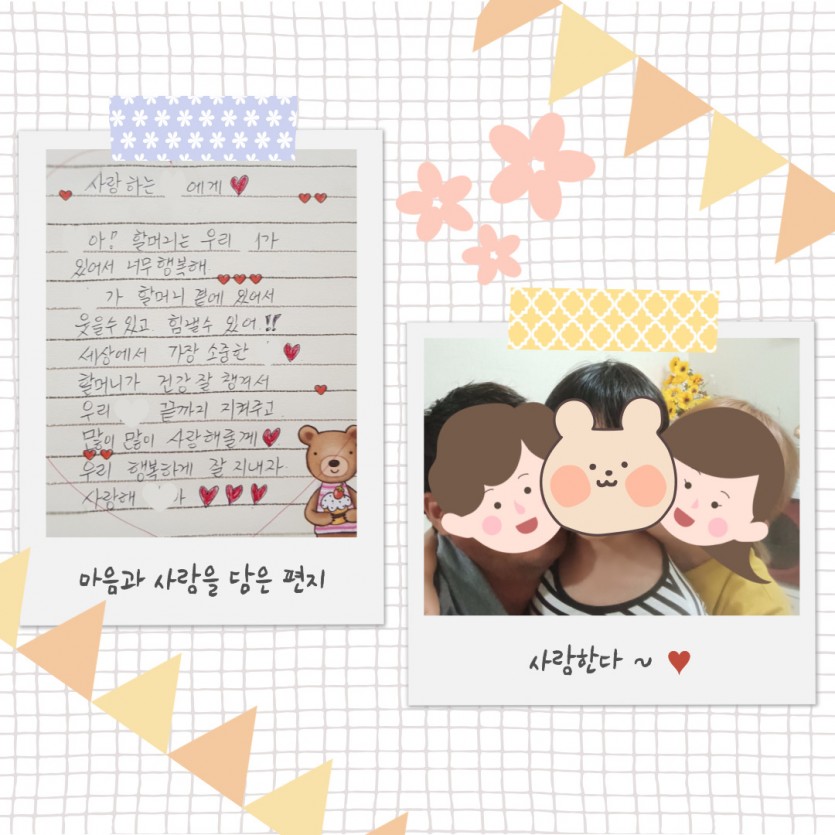 사랑하는 에게
아! 할머니는 우리 가
있어서 너무행복해
가 할머니 곁에 있어서
웃을수 있고 힘낼수 있어!!
세상에서 가장 소중한
할머니가 건강 잘 챙겨서
우리 끝까지 지켜주고
많이 많이 사랑해줄게
우리 행복하게 잘 지내자
사랑해
마음과 사랑을 담은 편지
사랑한다 ~ ♥